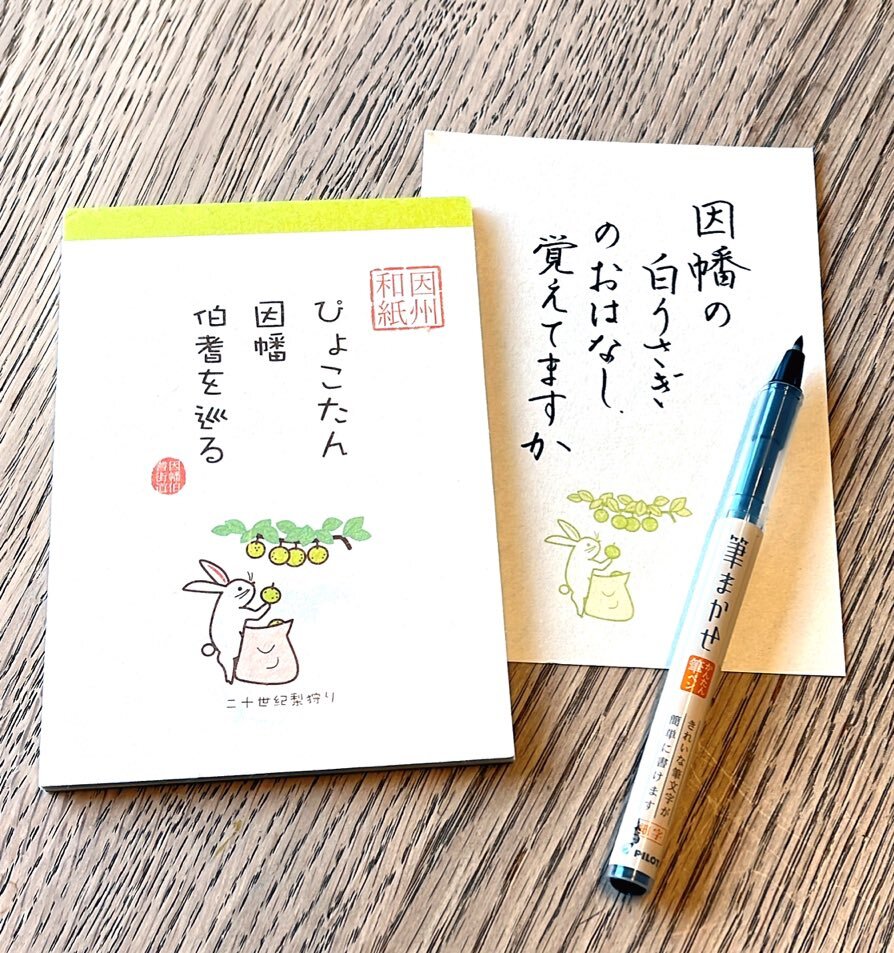 因州
和紙
ぴょこたん
因幡
伯耆を巡る
因幡伯
耆街道
二十世紀梨狩り
因幡の
白うさぎ
のおはなし
覚えてますか
筆まかせ
かんたん
筆ペン
きれいな筆文字が
簡単に書けます
細字
PILOT